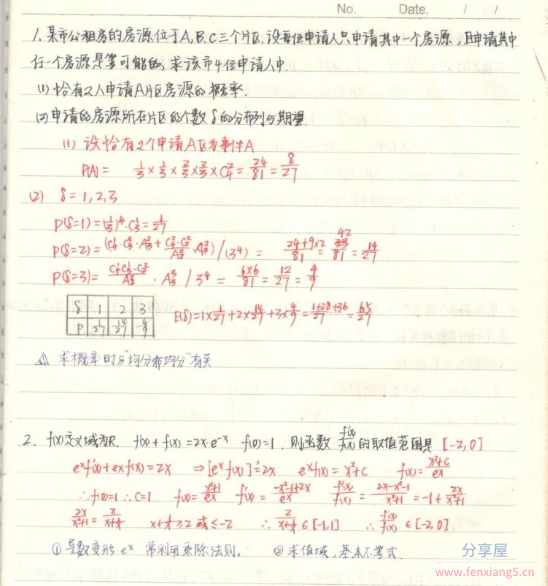 No. Date. / /
1. 某市公租房的房源位于A.B.C三个片区.设每位申请人只申请其中一个房源,且申请其中
任一个房源是等可能的,求该市4位申请人中.
(1) 恰有2人申请A片区房源的概率.
(2) 申请的房源所在片区的个数δ的分布列与期望.
(1) 设恰有2个申请A区为事件A
P(A)= 1/3×1/3×2/3×2/3×C₄² = 24/81 = 8/27
(2) δ=1,2,3
P(δ=1)=(1/3)⁴·C₃¹=1/27
P(δ=3)= · A₃³ / 3⁴ = 6×6/81 = 12/27 = 4/9
δ 1 2 3
P 1/27 14/27 4/9
E(δ)=1×1/27+2×14/27+3×4/9=1+28+36/27=65/27
求概率时与"均分非均分"有关
2. f(x)定义域为R. f(x)+f'(x)=2x·e⁻ˣ f(0)=1,则函数 f'(x)/f(x) 的取值范围是 [-2,0]
eˣf'(x)+eˣf(x)=2x ⇒[eˣf(x)]'=2x eˣf(x)=x²+c f(x)=x²+c/eˣ
∴f(0)=1 ∴C=1 f(x)=x²+1/eˣ f'(x)=-x²+2x-1/eˣ f'(x)/f(x)=2x-x²-1/x²+1=-1+2x/x²+1
2x/x²+1=2/x+1/x x+1/x≥2或≤-2 ∴2/x+1/x∈[-1,1] ∴f'(x)/f(x)∈[-2,0].
①导数变形 eˣ 常利用乘除法则. ②求值域,基本不等式.
分享屋
www.fenxiang5.cn